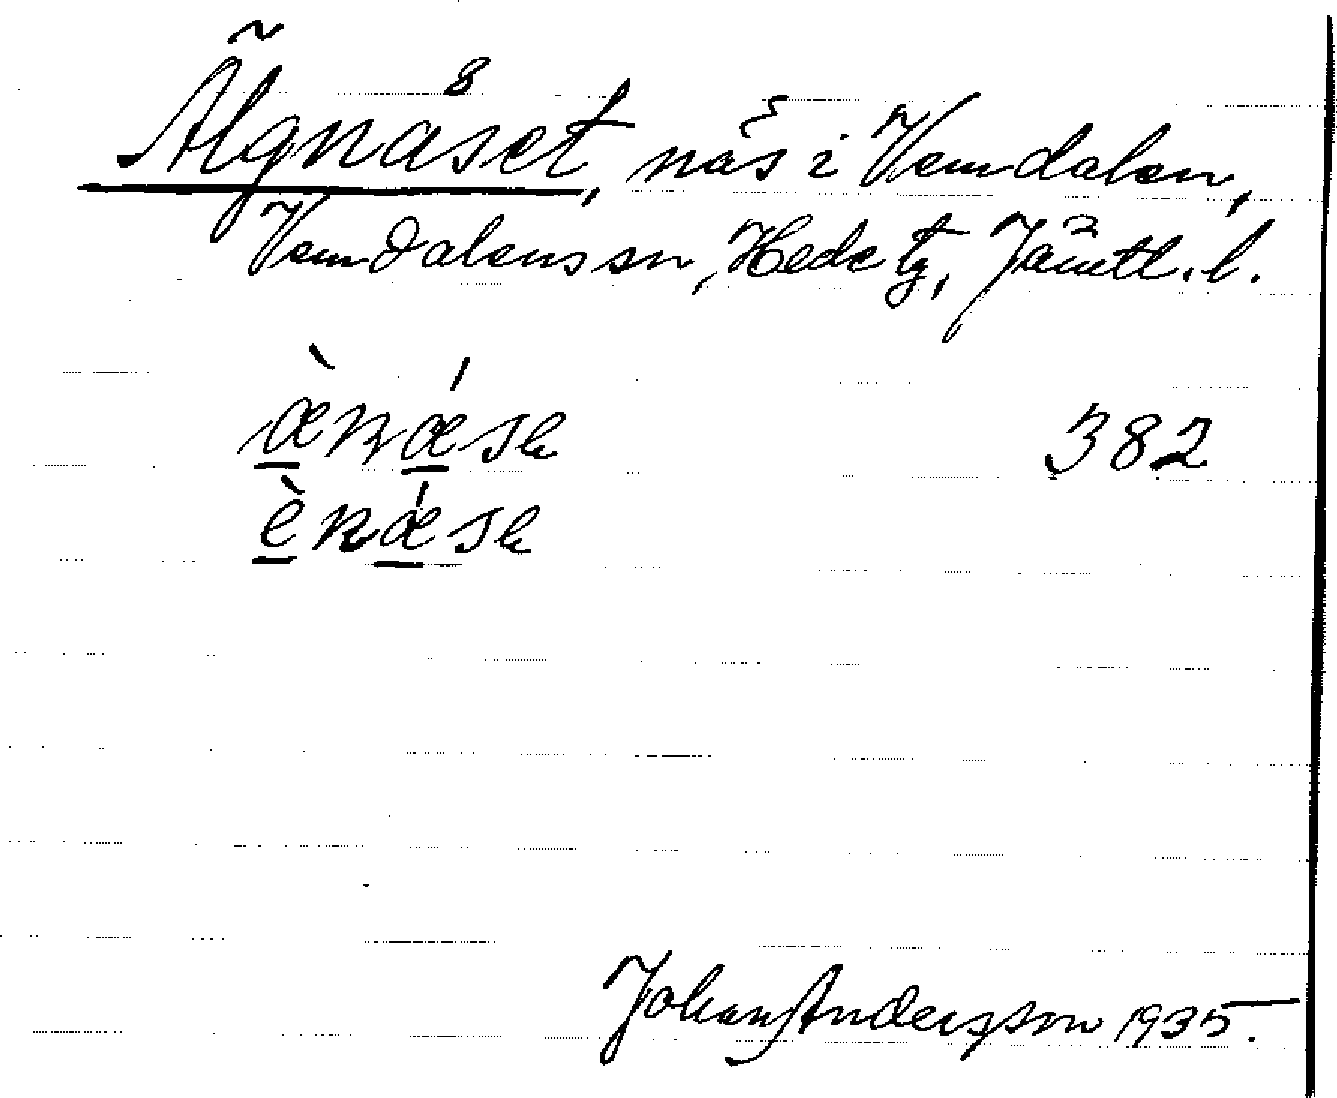 Älgnäset, näs i Vemdalen,
Vemdalens sn, Hede tg, Jämtl. l.
æ̀nǽsə 382
ènǽsə
Johan Andersson 1935.